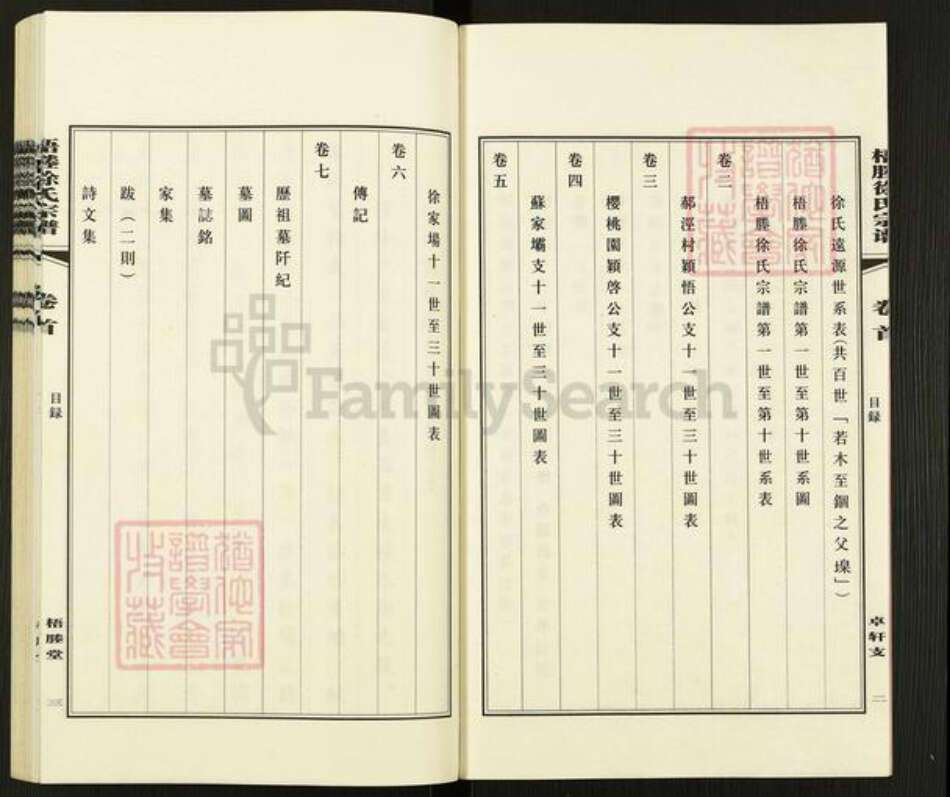 梧塍徐氏宗谱
卷首
目録
卓轩支
二
徐氏遠源世系表(共百世「若木至錮之父璪」)
梧塍徐氏宗譜第一世至第十世系圖
梧塍徐氏宗譜第一世至第十世系表
卷二
郝涇村穎悟公支十一世至三十世圖表
卷三
櫻桃園穎啓公支十一世至三十世圖表
卷四
蘇家壩支十一世至三十世圖表
卷五
徐家場十一世至三十世圖表
卷六
傳記
卷七
歷祖墓阡紀
墓圖
墓誌銘
家集
跋(二則)
詩文集
梧塍徐氏宗譜
卷首
目録
梧塍堂
FamilySearch